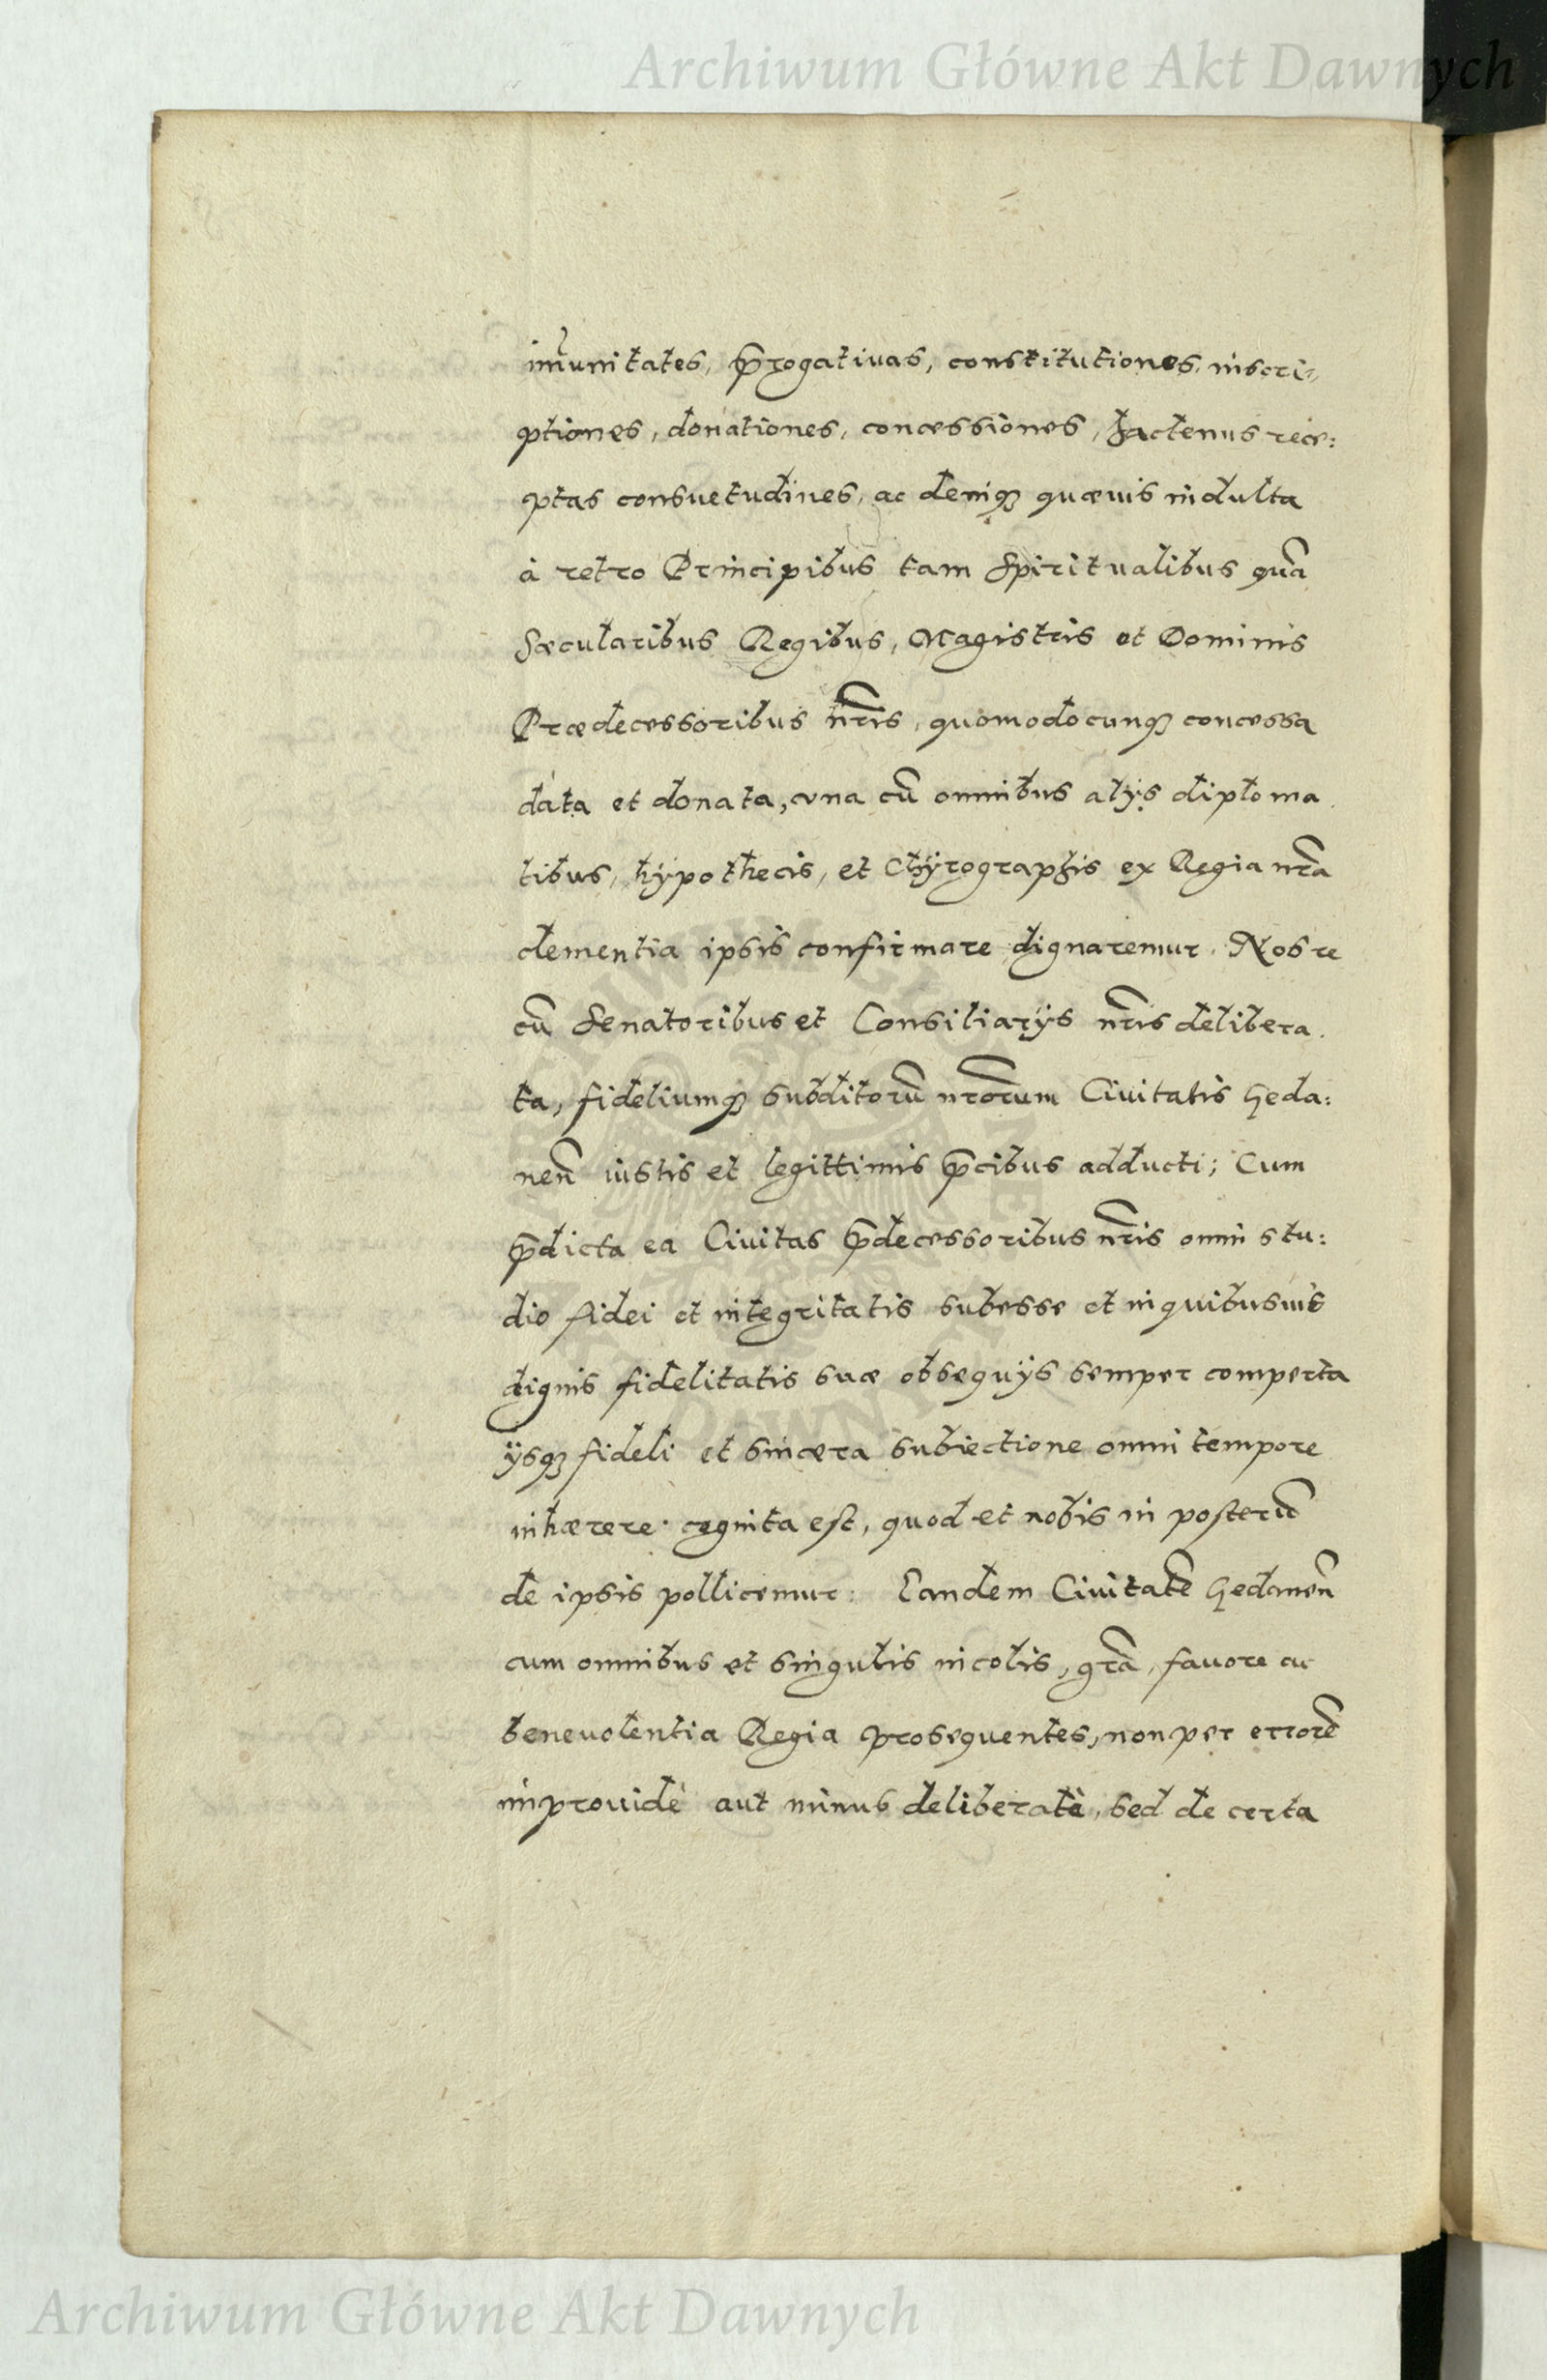 Archiwum Główne Akt Dawnych
im̃unitates, p̃rogatiuas, constitutiones, inscri=
ptiones, donationes, concessiones, hactenus rece:
ptas consuetudines, ac deniqꝫ quæuis indulta
à retro Principibus tam Spiritualibus quã
Sæcularibus Regibus, Magistris et Dominis
Prædecessoribus nr̃is, quomodocunqꝫ concessa
data et donata, vna cũ omnibus alijs diploma
tibus, hÿpothecis, et Chÿrographis ex Regia nr̃a
clementia ipsis confirmare dignaremur. Nos re
cũ Senatoribus et Consiliarÿs nr̃is delibera
ta, fideliumqꝫ subditorũ nr̃orum Ciuitatis Heda:
neñ iustis et legittimis p̃cibus adducti; Cum
p̃dicta ea Ciuitas p̃decessoribus nr̃is omni stu:
dio fidei et integritatis subesse et in quibusuis
dignis fidelitatis suæ obsequÿs semper comperta
ÿsqꝫ fideli et sincera subiectione omni tempore
inhærere cognita est, quod et nobis in posterũ
de ipsis pollicemur: Eandem Ciuitatẽ Hedaneñ
cum omnibus et singulis incolis, gr̃a, fauore ac
beneuolentia Regia prosequentes, non per errorẽ
improuidè aut minus deliberatè, sed de certa
Archiwum Główne Akt Dawnych